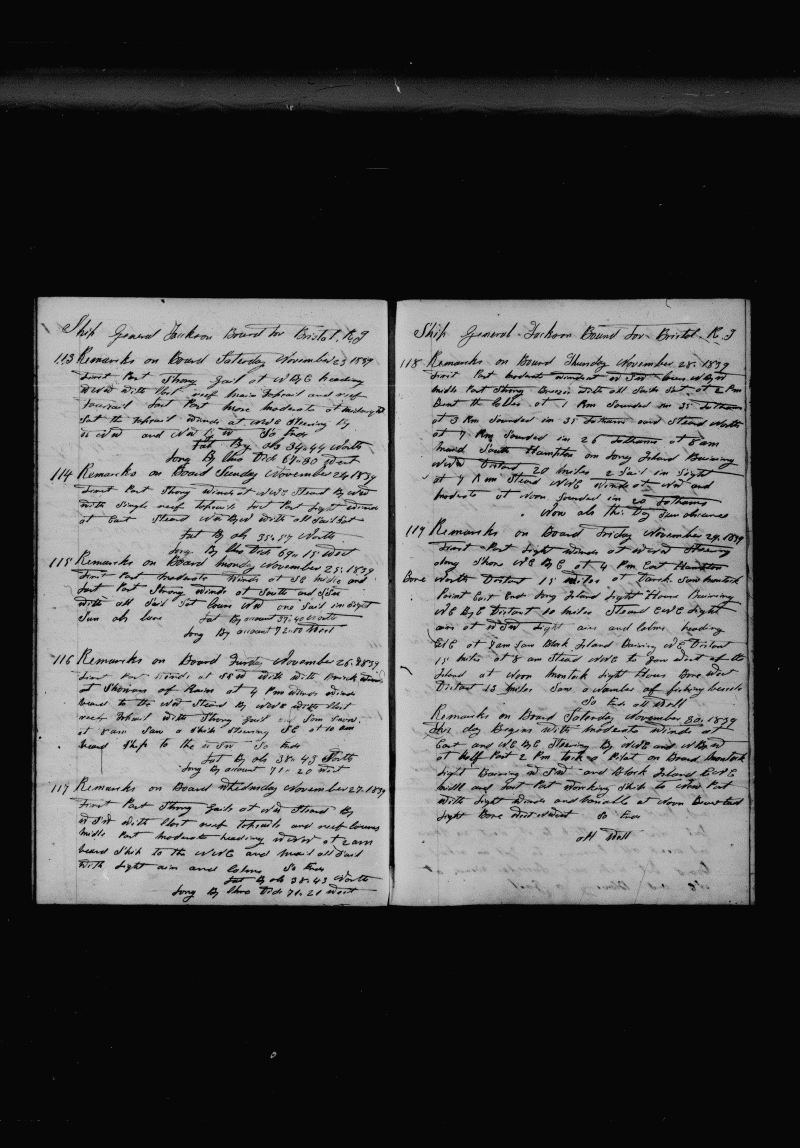 Ship General Jackson Bound for Bristol R I
113 Remarks on Board Saterday November 23 1839
First Part Strong Gail at W B S heading
with Clost reef main topsail and reef
foursail Last Part more moderate at midnight
Set the topsail winds at Steering By
and NW So Ends
Lat By obs 34-44 North
Long By Chro
114 Remarks on Board Sunday November 24 1839
First Part Strong winds at Steard By NW
with Single reef topsails Last Part Light winds
at East Steard NW B W with all Sail Set
Lat By obs 35-57 North
Long By Chro 69-15 West
115 Remarks on Board Monday November 25 1839
First Part Moderate winds at SE Middle and
Last Part Strong winds at South and SSW
with all Sail Set Cours NW one Sail in Sight
Sun obscure Lat By account 37-40 North
Long By account 72-50 West
116 Remarks on Board Tusday November 26 1839
First Part winds at SSW with Brisk winds
at Showers of Rain at 4 Pm winds
heard to the NW Steard By with Clost
reef topsail with Strong Gail and Som Snow
at 8 am Saw a Ship Steering SE at 10 am
Weard Ship to the So Ends
Lat By obs 38-43 North
Long By account 71-20 West
117 Remarks on Board Whednsday November 27 1839
First Part Strong Gails at NW Steard By
WSW with Clost reef topsails and reef Courses
Midle Part moderate heading WNW at 2 am
Weard Ship to the NNE and mad all Sail
with Light airs and Calms So Ends
Lat By obs 38-43 North
Long By Chro 71-21 West
Ship General Jackson Bound for Bristol R I
118 Remarks on Board Thursday November 28 1839
First Part moderate winds at W SW Cours N B W
Midle Part Strong Breeses with all Sails Set at 2 Pm
Bent the Cables at 1 Pm Sounded in 35 fathoms
at 3 Pm Sounded in 35 fathoms and Steard North
at 7 Pm Sounded in 26 fathoms at 8 am
maid South Hampton on Long Island Bearing
NNW Distant 20 Miles 2 Sail in Sight
at 9 Am Steard NNE winds at NW and
moderate at Noon Sounded in 20 fathoms
Now obs this Day Sun obscure
119 Remarks on Board Friday November 29 1839
First Part Light winds at WNW Steering
along Shore NE B E at 4 Pm East Hampton
Bore North Distant 15 miles at Dark Saw Montock
Point East End Long Island Light House Bearing
NE B E Distant 10 miles Steard ENE Light
airs at WSW Light airs and Calms heading
ENE at 7 am Saw Block Island Baring NE Distant
15 Miles at 8 am Steard NNE to Run West of the
Island at Noon Montock Light House Bore West
Distant 13 Miles Saw a Number of fishing vessels
So Ends all Well
Remarks on Board Saterday November 30 1839
This day Begins with moderate winds at
East and NE B E Steering By NNE and N B W
at half Past 2 Pm took a Pilot on Board Montock
Light Baring W SW and Block Island ENE
midll and Last Part Working Ship to the Port
with Light winds and Variable at Noon
Light Bore West So Ends
all Well